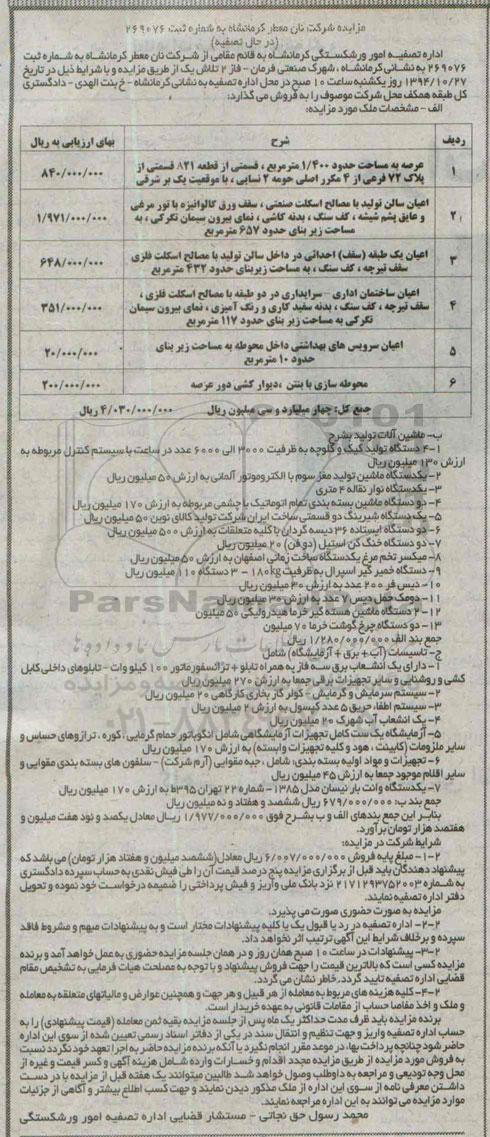 مزایده شرکت نان معطر کرمانشاه به شماره ثبت ۲۶۹۰۷۶
(در حال تصفیه)
اداره تصفیه امور ورشکستگی کرمانشاه به قائم مقامی از شرکت نان معطر کرمانشاه به شماره ثبت
۲۶۹۰۷۶ به نشانی کرمانشاه ، شهرک صنعتی فرمان - فاز ۲ تلاش یک از طریق مزایده و با شرایط ذیل در تاریخ
۱۳۹۴/۱۰/۲۷ روز یکشنبه ساعت ۱۰ صبح در محل اداره تصفیه به نشانی کرمانشاه - خ بنت الهدی - دادگستری
کل طبقه همکف محل شرکت موصوف را به فروش می گذارد:
الف - مشخصات ملک مورد مزایده:
ردیف شرح بهای ارزیابی به ریال
۱ عرصه به مساحت حدود ۱/۴۰۰ مترمربع ، قسمتی از قطعه ۸۲۱ قسمتی از
پلاک ۷۲ فرعی از ۴ مکرر اصلی حومه ۲ نسابی ، با موقعیت یک بر شرقی ۸۴۰/۰۰۰/۰۰۰
۲ اعیان سالن تولید با مصالح اسکلت صنعتی ، سقف ورق گالوانیزه با تور مرغی
و عایق پشم شیشه ، کف سنگ ، بدنه کاشی ، نمای بیرون سیمان تگرگی ، به
مساحت زیر بنای حدود ۶۵۷ مترمربع ۱/۹۷۱/۰۰۰/۰۰۰
۳ اعیان یک طبقه (سقف) احداثی در داخل سالن تولید با مصالح اسکلت فلزی
سقف تیرچه ، کف سنگ ، به مساحت زیربنای حدود ۴۳۲ مترمربع ۶۴۸/۰۰۰/۰۰۰
۴ اعیان ساختمان اداری - سرایداری در دو طبقه با مصالح اسکلت فلزی ،
سقف تیرچه ، کف سنگ ، بدنه سفید کاری و رنگ آمیزی ، نمای بیرون سیمان
تگرگی به مساحت زیر بنای حدود ۱۱۷ مترمربع ۳۵۱/۰۰۰/۰۰۰
۵ اعیان سرویس های بهداشتی داخل محوطه به مساحت زیر بنای
حدود ۱۰ مترمربع ۲۰/۰۰۰/۰۰۰
۶ محوطه سازی با بتن ،دیوار کشی دور عرصه ۲۰۰/۰۰۰/۰۰۰
جمع کل: چهار میلیارد و سی میلیون ریال ۴/۰۳۰/۰۰۰/۰۰۰ ریال
ب- ماشین آلات تولید بشرح
۱-۴ دستگاه تولید کیک و کلوچه به ظرفیت ۳۰۰۰ الی ۶۰۰۰ عدد در ساعت با سیستم کنترل مربوطه به
ارزش ۱۳۰ میلیون ریال
۲- یکدستگاه ماشین تولید مغز سوم با الکتروموتور آلمانی به ارزش ۵۰ میلیون ریال
۳- یکدستگاه نوار نقاله ۴ متری
۴- دو دستگاه ماشین بسته بندی تمام اتوماتیک با چشمی مربوطه به ارزش ۱۷۰ میلیون ریال
۵- یکدستگاه شیرینگ دو قسمتی ساخت ایران شرکت تولید کالای نوین ۵۰ میلیون ریال
۶- دو دستگاه ایستاده ۳۶ دیسه گردان با کلیه متعلقات به ارزش ۵۰۰ میلیون ریال
۷- دو دستگاه خنک کن استیل (دو فن) ۲۰ میلیون ریال
۸- میکسر تخم مرغ یکدستگاه ساخت زمانی اصفهان به ارزش ۵۰ میلیون ریال
۹- دستگاه خمیر گیر اسپرال به ظرفیت ۱۸۰kg - ۳ دستگاه ۱۱۰ میلیون ریال
۱۰- دیس فر ۲۰۰ عدد به ارزش ۳۰ میلیون ریال
۱۱- دومک حمل دیس ۷ عدد به ارزش ۳۰ میلیون ریال
۱۲- ۲ دستگاه ماشین هسته گیر خرما هیدرولیکی ۵۰ میلیون
۱۳- دو دستگاه چرخ گوشت خرما ۷۰ میلیون
جمع بند الف ۱/۲۸۰/۰۰۰/۰۰۰ ریال
ج- تاسیسات (آب + برق + آزمایشگاه) شامل
۱- دارای یک انشعاب برق سه فاز به همراه تابلو + ترانسفورماتور ۱۰۰ کیلو وات - تابلوهای داخلی کابل
کشی و روشنایی و سایر تجهیزات برقی جمعا به ارزش ۲۷۰ میلیون ریال
۲- سیستم سرمایش و گرمایش - کولر گاز بخاری کارگاهی ۲۰ میلیون ریال
۳- سیستم اطفاء حریق ۵ عدد کپسول به ارزش ۲ میلیون ریال
۴- یک انشعاب آب شهرک ۲۰ میلیون ریال
۵- آزمایشگاه یک ست کامل تجهیزات آزمایشگاهی شامل انکوباتور حمام گرمایی ، کوره ، ترازوهای حساس و
سایر ملزومات (کابینت ، هود و کلیه تجهیزات وابسته) به ارزش ۱۷۰ میلیون ریال
۶- تجهیزات و مواد اولیه بسته بندی: شامل ، جبه مقوایی (آرم شرکت) - سلفون های بسته بندی مقوایی و
سایر اقلام موجود جمعا به ارزش ۴۵ میلیون ریال
۷- یکدستگاه وانت بار نیسان مدل ۱۳۸۵- شماره ۲۲ تهران ۳۹۵ط به ارزش ۱۷۰ میلیون ریال
جمع بند ب: ۶۷۹/۰۰۰/۰۰۰ ریال ششصد و هفتاد و نه میلیون ریال
بنابر این جمع بندهای الف و ب بشرح فوق ۱/۹۷۷/۰۰۰/۰۰۰ ریال معادل یکصد و نود هفت میلیون و
هفتصد هزار تومان برآورد.
شرایط شرکت در مزایده:
۱-۲- مبلغ پایه فروش ۶/۰۰۷/۰۰۰/۰۰۰ ریال معادل(ششصد میلیون و هفتاد هزار تومان) می باشد که
پیشنهاد دهندگان باید قبل از برگزاری مزایده پنج درصد قیمت آن را طی فیش نقدی به حساب سپرده دادگستری
به شماره ۲۱۷۱۲۹۳۷۵۲۰۰۳ نزد بانک ملی واریز و فیش پرداختی را ضمیمه درخواست خود نموده و تحویل
دفتر اداره تصفیه نمایند.
مزایده به صورت حضوری صورت می پذیرد.
۲-۲- اداره تصفیه در رد یا قبول یک یا کلیه پیشنهادات مختار است و به پیشنهادات مبهم و مشروط فاقد
سپرده و برخلاف شرایط این آگهی ترتیب اثر نخواهد داد.
۲-۳- پیشنهادات در ساعت ۱۰ صبح همان روز و در همان جلسه مزایده حضوری به عمل خواهد آمد و برنده
مزایده کسی است که بالاترین قیمت را جهت فروش پیشنهاد و با توجه به مصلحت هیات فرمایی به تشخیص مقام
قضایی اداره تصفیه تایید گردد. خاطر نشان می گردد.
۲-۴- کلیه هزینه های مربوط به معامله از هر قبیل و هر جهت و همچنین عوارض و مالیاتهای متعلقه به معامله
و ملک و اخذ مفاصا حساب از مقامات قانونی به عهده خریدار است.
برنده مزایده باید ظرف مدت حداکثر یک ماه پس از جلسه مزایده بقیه ثمن معامله (قیمت پیشنهادی) را به
حساب اداره تصفیه واریز و جهت تنظیم و انتقال سند در یکی از دفاتر اسناد رسمی تعیین شده از سوی این اداره
حاضر شود چنانچه پرداخت بها، در موعد مقرر انجام نگیرد یا آنکه برنده مزایده حاضر به اجرا تعهد خود نگردد نسبت
به فروش مورد مزایده از طریق مزایده مجدد اقدام و خسارات وارده شامل هزینه آگهی و کسر قیمت و غیره از
محل وجه تودیعی و مراجعه به داوطلب وصول خواهد شد طالبین میتوانند یک هفته قبل از مزایده با در دست
داشتن معرفی نامه از سوی این اداره از ملک مذکور دیدن نمایند و جهت کسب اطلاع بیشتر و آگاهی از جزئیات
موارد مزایده می توانند به این اداره مراجعه نمایند.
محمد رسول حق نجاتی - مستشار قضایی اداره تصفیه امور ورشکستگی